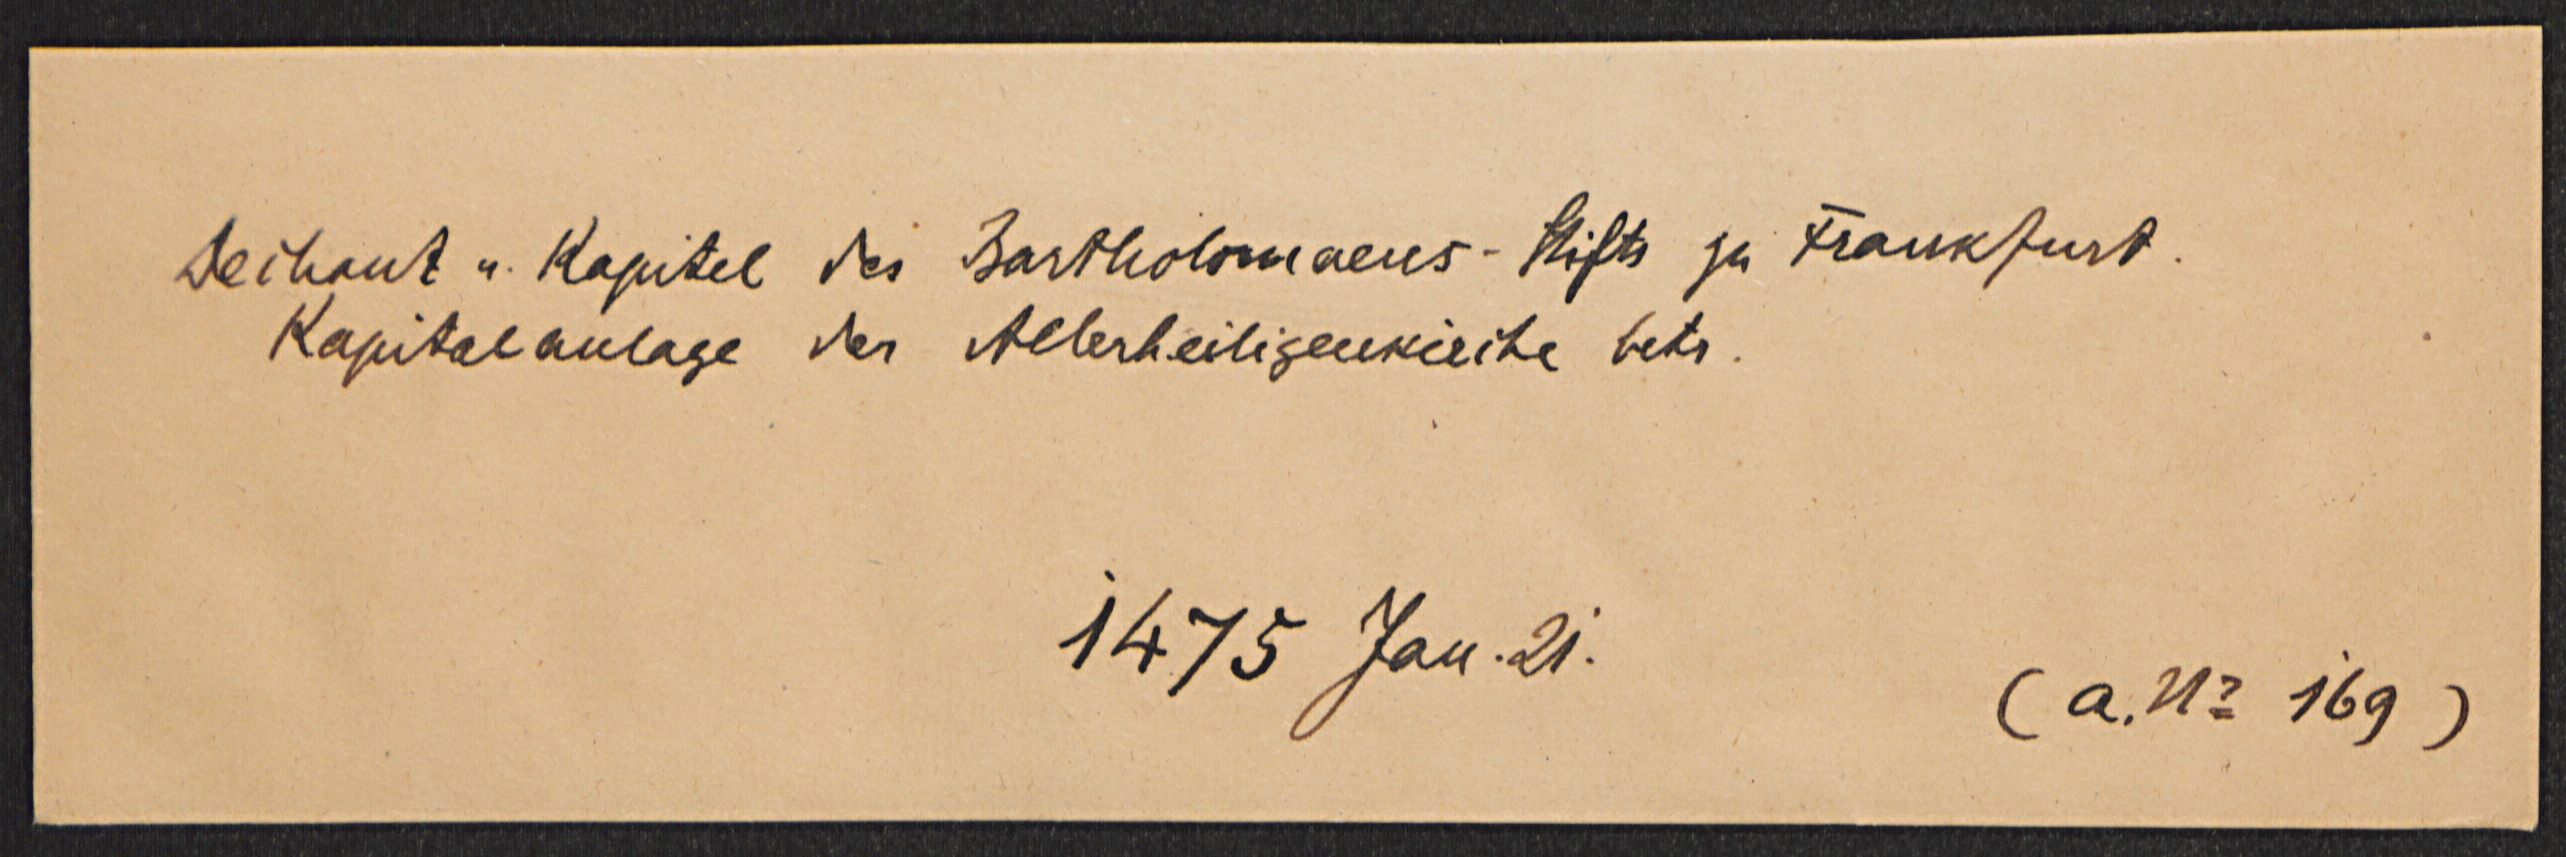 Dechant u. Kapitel des Bartholomaeus-Stifts zu Frankfurt.
Kapitalanlage der Allerheiligenkirche betr.
1475 Jan. 21.
(a. No 169)